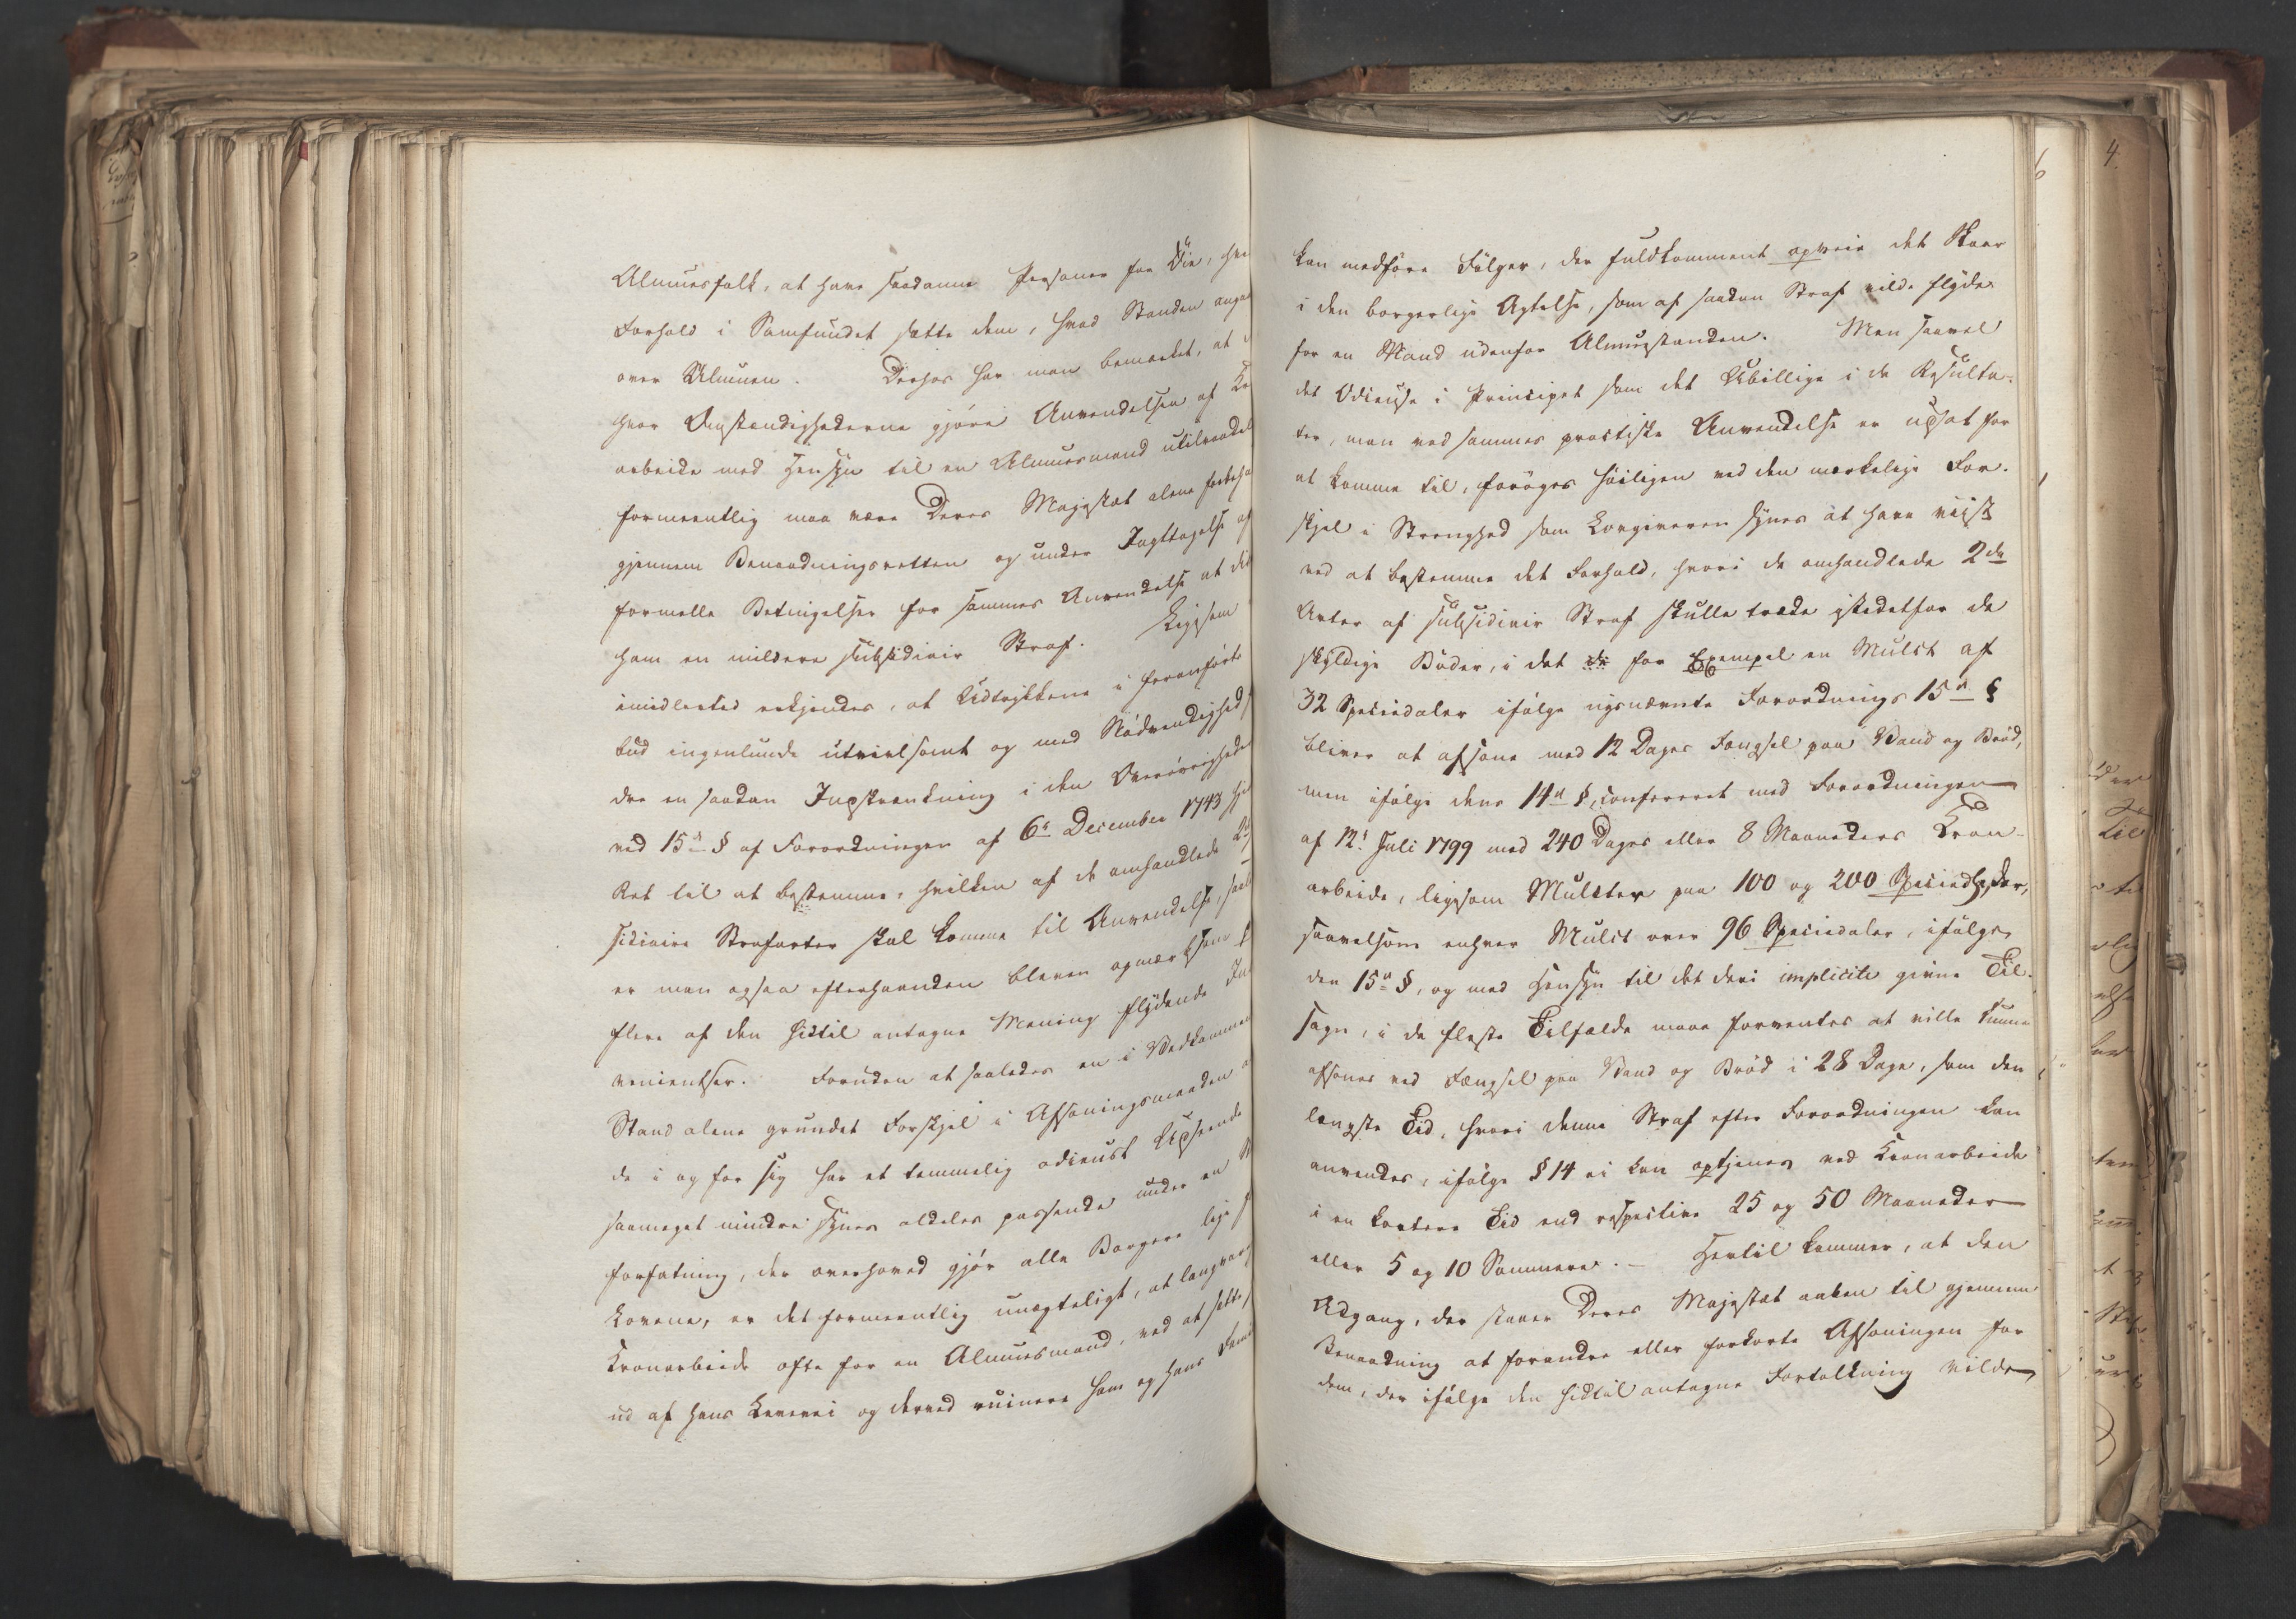 Almuesfolk, at have saadanne Personer for Øie, hvis
Forhold i Samfundet sætte dem, hvad Standen angaar
over Almuen. Derhos har man bemærket, at
hvor Omstændighederne gjøre Anvendelsen af
arbeide med Hensyn til en Almuesmand utilraadel
formeentlig maa være Deres Majestæt alene forbeho
gjennem Benaadningsretten og under Iagttagelse af
formelle Betingelser for sammes Anvendelse at
ham en mildere subsidiair Straf. Ligesom
imidlertid erkjendes, at Udtrykkene i foranførte
bud ingenlunde utvivlsomt og med Nødvendighed
dre en saadan Indskrænkning i den Overøvrigheden
ved 15de § af Forordningen af 6te December 1743
Ret til at bestemme, hvilken af de omhandlede
sidiaire Strafarter skal komme til Anvendelse,
er man ogsaa efterhaanden bleven opmærksom
flere af den hidtil antagne Mening flydende
venientser. Foruden at saaledes en i Vedkommen
Stand alene grundet Forskjel i Afsoningsmaaden
de i og for sig har et temmelig odieust Udseende
saameget mindre synes aldeles passende under en
forfatning, der overhoved gjør alle Borgere lige
Lovene, er det formeentlig unægteligt, at langvar
Kronarbeide ofte for en Almuesmand, ved at sætte
ud af hans Levevei og derved ruinere ham og hans
kan medføre Følger, der fuldkomment opveie det Skaar
i den borgerlige Agtelse, som af saadan Straf vilde flyde
for en Mand udenfor Almuestanden. Men saavel
det Odieuse i Principet som det Ubillige i de Resulta-
ter, man ved sammes practiske Anvendelse er udsat for
at komme til, forøges høiligen ved den mærkelige For-
skjel i Strenghed som Lovgiveren synes at have viist
ved at bestemme det Forhold, hvori de omhandlede 2de
Arter af subsidiair Straf skulle træde istedetfor de
skyldige Bøder, i det de for Exempel en Mulct af
32 Speciedaler ifølge nysnævnte Forordnings 15de §
bliver at afsone med 12 Dages Fængsel paa Vand og Brød,
men ifølge dens 14de §, confereret med Forordningen
af 12te Juli 1799 med 240 Dages eller 8 Maaneders Kron-
arbeide, ligesom Mulcter paa 100 og 200 Speciedaler,
saavelsom enhver Mulct over 96 Speciedaler, ifølge
den 15de §, og med Hensyn til det deri implicite givne Til-
sagn, i de fleste Tilfælde maae forventes at ville kunne
afsones ved Fængsel paa Vand og Brød i 28 Dage, som den
længste Tid, hvori denne Straf efter Forordningen kan
anvendes, ifølge § 14 ei kan optjenes ved Kronarbeide
i en kortere Tid end respective 25 og 50 Maaneder
eller 5 og 10 Sommere. – Hertil kommer, at den
Adgang, der staaer Deres Majestæt aaben til gjennem
Benaadning at forandre eller forkorte Afsoningen for
dem, der ifølge den hidtil antagne Fortolkning vilde
6
4.